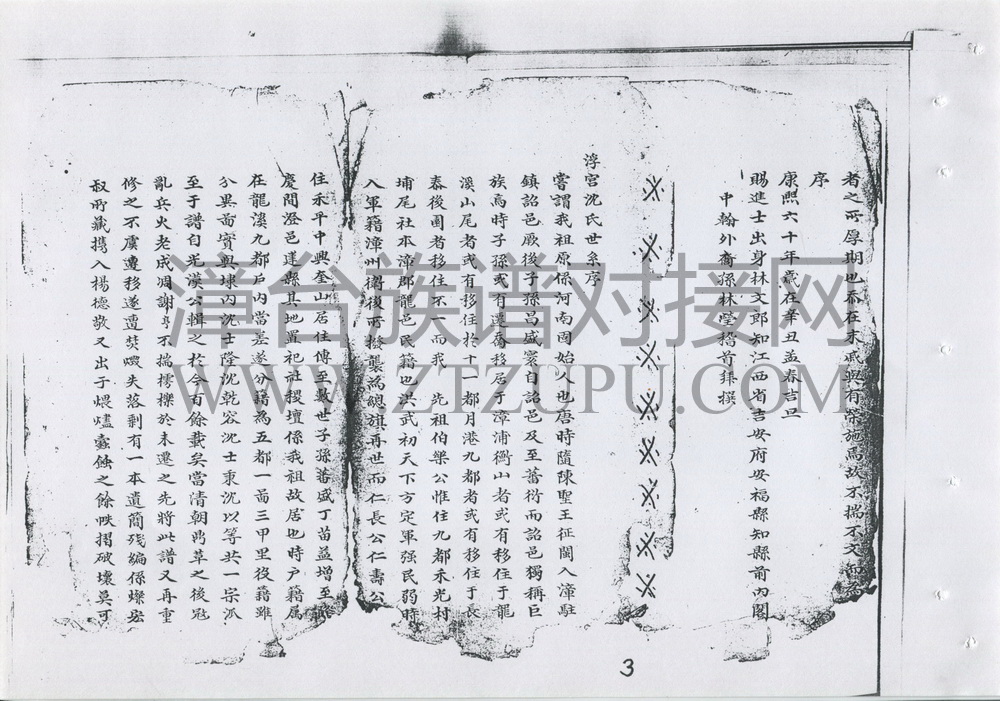 者之所厚期也春在末戚與有榮施焉故不揣不文而為
序
康熙六十年歲在辛丑孟春吉旦
賜進士出身林文郎知江西省吉安府安福縣知縣前內閣
中翰外裔孫林瑩稽首拜撰
浮宮沈氏世系序
嘗謂我祖原係河南固始人也唐時隨陳聖王征閩入漳駐
鎮詔邑厥後子孫昌盛寔自詔邑及至蕃衍而詔邑獨稱巨
族焉時子孫或有遷喬移居于漳浦衙山者或有移住于龍
溪山尾者或有移住於十一都月港九都者或有移住于長
泰後圃者移住不一而我 先祖伯樂公惟住九都禾光村
埔尾社本漳郡龍邑民籍也洪武初天下方定軍强民弱時
入軍籍漳州衛後所移襲為總旗再世而仁長公仁壽公
住禾平中興奎山居住傳至數世子孫蕃盛丁苗益增至隆
慶間澄邑建縣其地置祀社稷壇係我祖故居也時户籍属
在龍溪九都戶內當差遂分籍為五都一啚三甲里役籍雖
分異而實與埭內沈士隆沈乾容沈士秉沈以等共一宗派
至于譜自光漢公輯之於今有餘載矣當清朝鼎革之後冦
亂兵火老成凋謝 不揣擣摭於未遷之先將此譜又再重
修之不虞遷移遂遭焚燬失落剩有一本遺簡殘編係燦宏
叔所藏携入楊德敬又出于煨燼蠹蝕之餘帙摺破壞莫可
3
漳台族谱对接网
WWW.ZTZUPU.COM